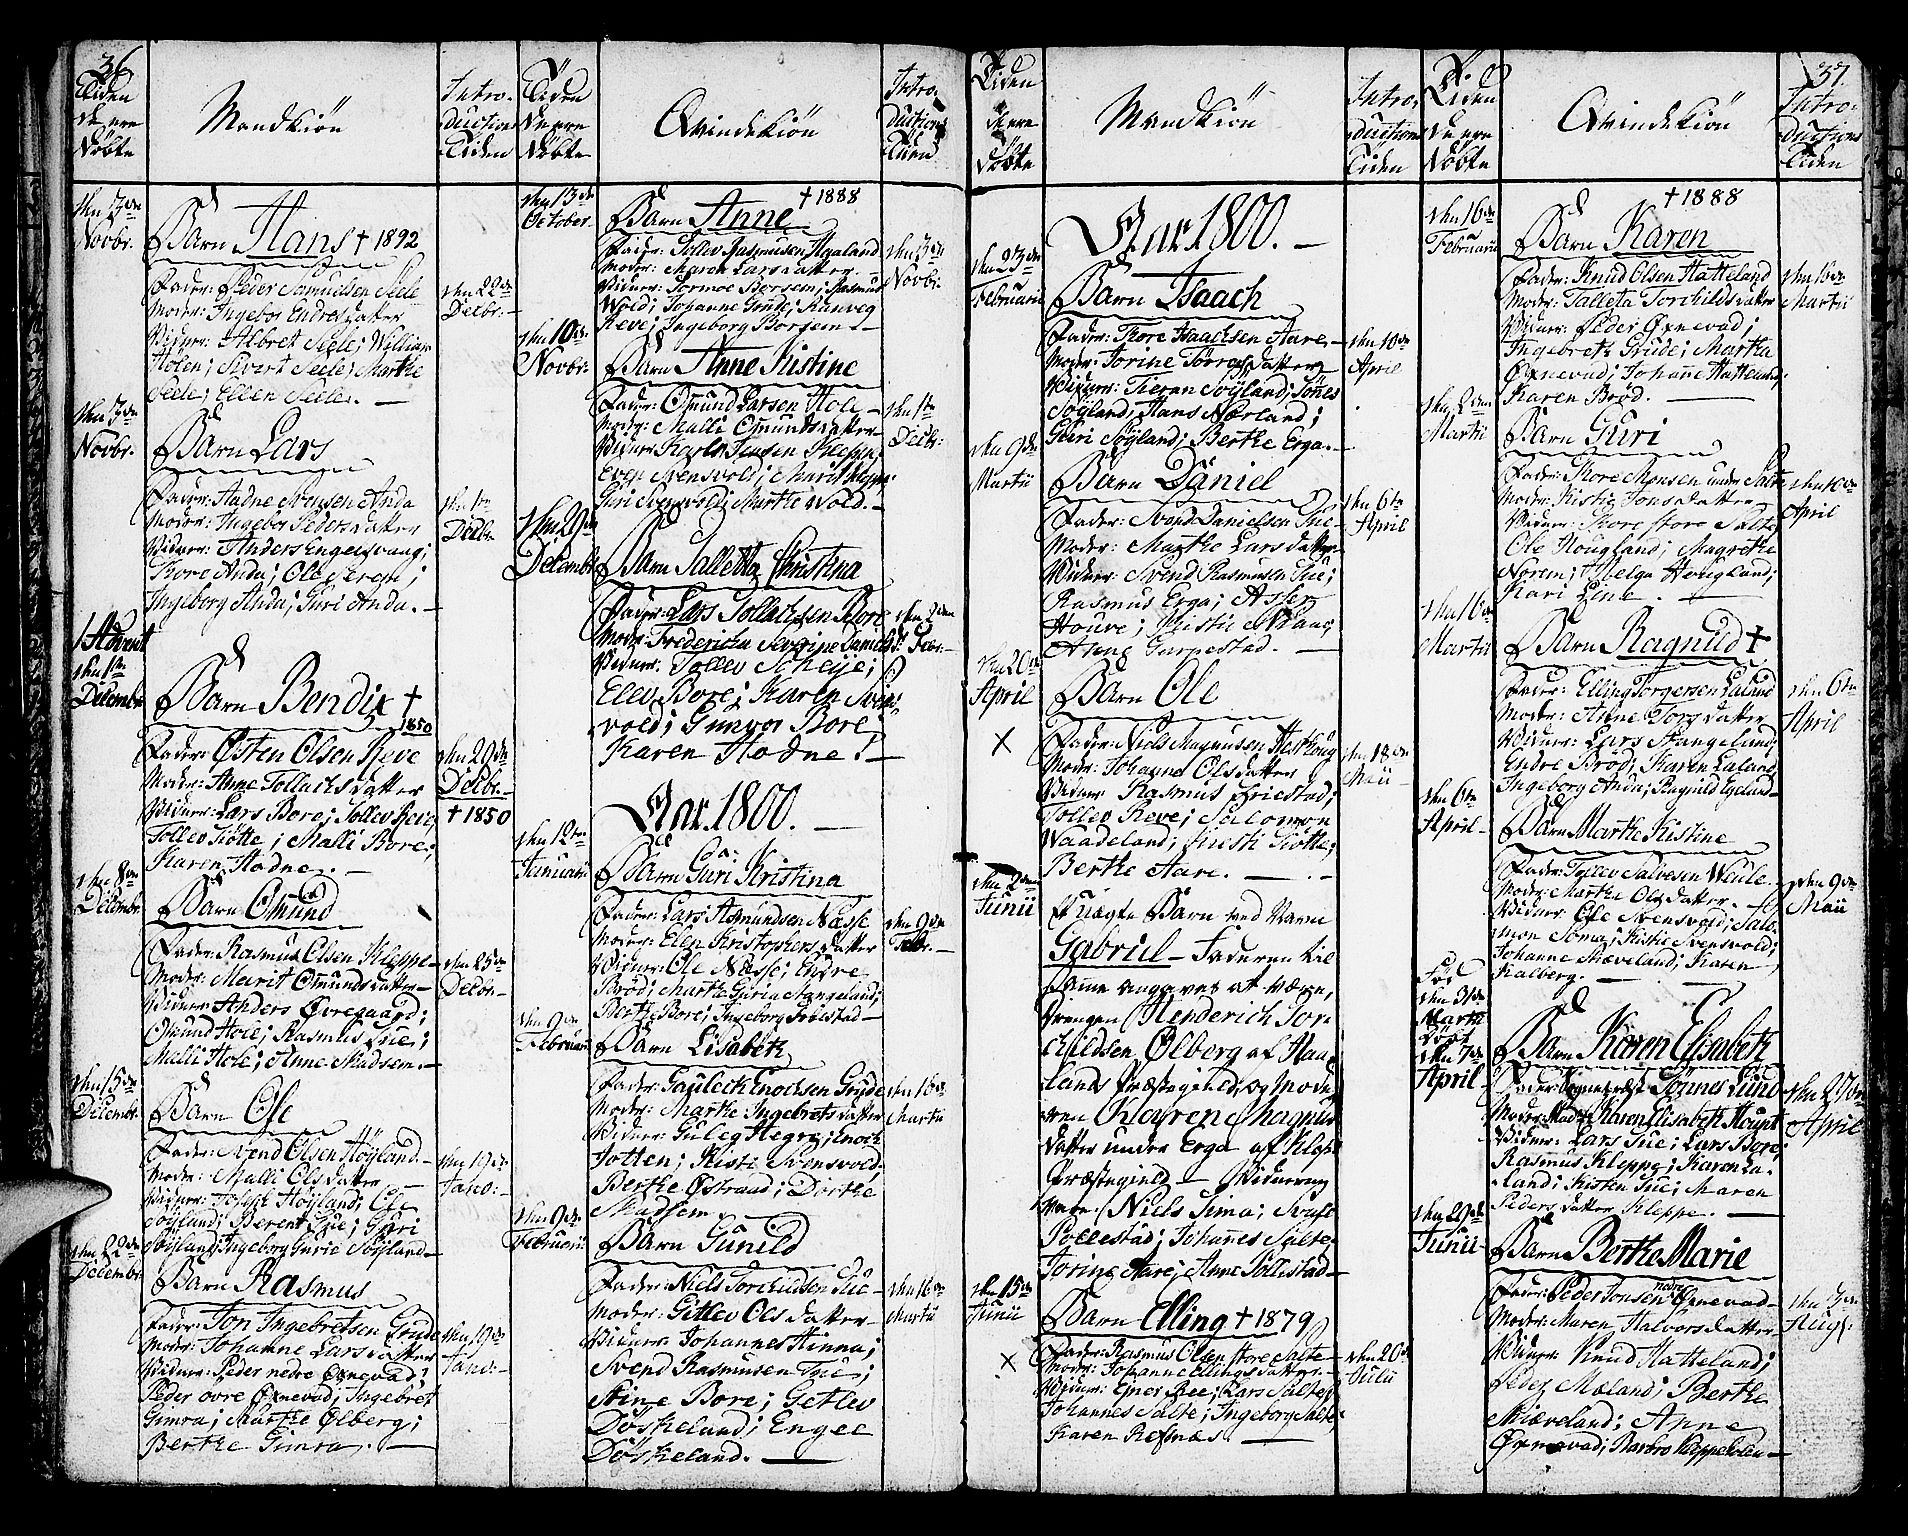 36
Tiden
de ere
døbte
Mandkiön
Intro-
ductions
Tiden
den 3de
Novbr.
Barn Hans † 1892
Fader: Peder Samuelsen Seele
Moder: Ingebor Endresdatter
Vidner: Albret Seele; William
Holen; Sivert Seele; Marthe
Seele; Ellen Seele. —
den 22de
Decbr. —
den 3de
Novbr.
Barn Lars
Fader: Aadne Monsen Anda
Moder: Ingebor Pedersdatter
Vidner: Anders Engelsvaag;
Tore Anda; Ole Serem;
Ingeborg Anda; Guri Anda. —
den 1te
Decbr
1 Advent
den 1te
Decembr
Barn Bendix †
1850
Fader: Østen Olsen Reve
Moder: Anne Tollachsdatter
Vidner: Lars Bore; Tollev Reve,
Tollev Tiötte; Malli Bore;
Karen Hodne. —
den 29de
Decbr. —
† 1850
den 8de
Decembr.
Barn Omünd
Fader: Rasmus Olsen Kleppe —
Moder: Marit Omundsdatter —
Vidner: Anders Øvregaard;
Omund Hole; Rasmus Tue;
Malli Hole; Anne Madsem. —
den 25de
Decbr —
den 15de
Decembr.
Barn Ole
Fader: Svend Olsen Höyland —
Moder: Malli Olsdatter —
Vidner: Joseph Höyland; Ole
Söyland; Berent Tue; Guri
Söyland; Ingeborg Gurie Söyland —
den 19de
Janv: —
den 22de
Decembr.
Barn Rasmus
Fader: Jon Ingebretsen Grude
Moder: Johanne Larsdatter
Vidner: Peder nedre Øxnevad;
Peder övre Øxnevad; Ingebret
Gimra; Marthe Ølberg;
Berthe Gimra. —
den 19de
Janv: —
Tiden
de ere
døbte
Qvindekiön
Intro-
ductions
Tiden
den 13de
October.
† 1888
Barn Anne
Fader: Tollev Rasmusen Hegaland
Moder: Maren Larsdatter.
Vidner: Tormoe Borsem; Rasmus
Vold; Johanne Grude; Ranveg
Reve; Ingeborg Borsem. —
den 3de
Novbr:
den 10de
Novbr:
Barn Anne Kistine
Fader: Omund Larsen Hole —
Moder: Malli Omundsdatter —
Vidner: Karl Jensen Kleppe,
Even Svensvold; Marit Kleppe,
Guri Svensvold; Marthe Vold. —
den 1te
Decbr:
den 29de
Decembr
Barn Talletta Christina
Fader: Lars Tollachsen Bore
Moder: Fredericha Severine Daniels
Vidner: Tollev Scheije;
Elev Bore; Karen Svens-
vold; Gunvor Bore,
Karen Hodne! —
den 2den
Febr. —
Aar 1800. —
den 12te
Januarii
Barn Guri Kristina
Fader: Lars Asmundsen Næsse
Moder: Elen Kristophersdatter
Vidner: Ole Næsse; Endre
Bröd; Marthe Guria Stangeland;
Berthe Bore; Ingeborg Friestad —
den 9de
Febr. —
den 9de
Februarii
Barn Lisabeth
Fader: Gauleck Enochsen Grude
Moder: Marthe Ingebretsdatter
Vidner: Guleg Hegre; Enoch
Jotten; Kisti Svensvold,
Berthe Østraad; Dorthe
Madsem.
den 16de
Martii
den 9de
Februarii
Barn Gunild
Fader: Niels Torchildsen Tue —
Moder: Gitlev Olsdatter —
Vidner: Johannes Hinna;
Svend Rasmusen Tue;
Stine Bore; Getlev
Döskeland; Engel
Döskeland. —
den 16de
Martii
Tiden
de ere
døbte
Mandkiön
Intro-
ductions
Tiden
Aar 1800. —
den 23de
Februarii
Barn Isaach
Fader: Tore Isaachsen Aare, —
Moder: Torine Torresdatter
Vidner: Tieran Söyland; Tönes
Söyland; Hans Nærland;
Guri Söyland; Berthe Erga. —
den 10de
April
den 9de
Martii
Barn Daniel
Fader: Svend Danielsen Tue —
Moder: Marthe Larsdatter —
Vidner: Svend Rasmusen Tue;
Rasmus Erga; Asten
Houve; Kisti
Anne Garpestad. —
den 6te
April
den 20de
April
×
Barn Ole
Fader: Niels Magnusen Hethoug
Moder: Johanne Olsdatter
Vidner: Rasmus Friestad;
Tollev Reve; Salomon
Vaadeland; Kisti Tiötte;
Berthe Aare. —
den 18de
Maii
den 2den
Junii
Uægte Barn ved Navn
Gabriel — Faderen til
samme angaves at være,
Drengen Henderich Tor-
childsen Ølberg af Haa-
lands Præstegield, og Mode-
ren Karen Magnus-
datter under Erga af Klep
Præstegield — Vidnerne
vare: Niels Sima; Svale
Pollestad; Johannes Salte.
Torine Aare; Anne Pollestad —
den 15de
Junii
×
Barn Elling † 1879
Fader: Rasmus Olsen store Salte —
Moder: Johanne Ellingsdatter —
Vidner: Ejner Ree; Lars Salte;
Johannes Salte; Ingeborg Salte;
Karen Refsnæs. —
den 20de
Julii
37.
Tiden
de ere
døbte
Qvindekiön
Intro-
ductions
Tiden
den 16de
Februarii
† 1888
Barn Karen
Fader: Knud Olsen Hatteland
Moder: Talleta Torchildsdatter
Vidner: Peder Øxnevad;
Ingebreth Grude; Martha
Øxnevad; Johanne Hatteland,
Karen Bröd. —
den 16de
Martii
den 2den
Martii
Barn Guri
Fader: Tore Monsen under Salte
Moder: Kistie Jonsdatter
Vidner: Tore store Salte
Ole Hougland; Magrethe
Norem; Helga Hougland;
Kari Line. —
den 10de
April
den 16de
Martii
Barn Ragnild †
Fader: Elling Torgersen Laland
Moder: Anne Torsdatter
Vidner: Lars Stangeland,
Endre Bröd; Karen Laland
Ingeborg Anda; Ragnild Egeland —
den 6te
April
den 6te
April —
Barn Marthe Kistine
Fader: Tollev Salvesen Veule.
Moder: Marthe Olsdatter. —
Vidner: Ole Svensvold; Salo-
mon Soma; Kisti Svensvold;
Johanne Skæveland; Karen
Kalberg. —
den 9de
Maii
Föd
den 31de
Martii
Döbt
den 7de
April —
Barn Karen Elisabeth
Fader: Tönnes Lund
Moder: Mad: Karen Elisabeth Hount
Vidner: Lars Tue; Lars Bore;
Rasmus Kleppe; Karen La-
land; Kisten Tue; Maren
Pedersdatter Kleppe. —
den 27de
April
den 29de
Junii —
Barn Berthe Marie
Fader: Peder Jonsen nedre Øxnevad —
Moder: Maren Halvorsdatter
Vidner: Knud Hatteland;
Peder Mæland; Berthe
Skiæveland; Anne
Øxnevad; Barbro Kleppelden —
den 3de
Aug: